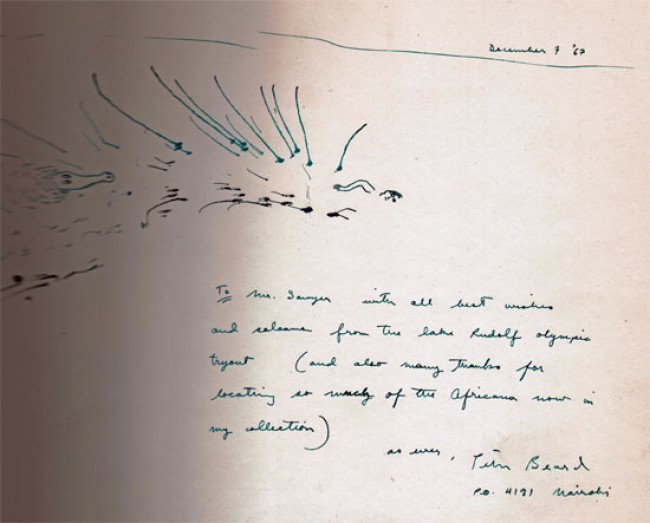 December 9 '67
To Mr. Sawyer with all best wishes
and salaams from the lake Rudolf olympic
tryout (and also many thanks for
locating so much of the Africana now in
my collection)
as ever, Peter Beard
P.O. 4191 Nairobi